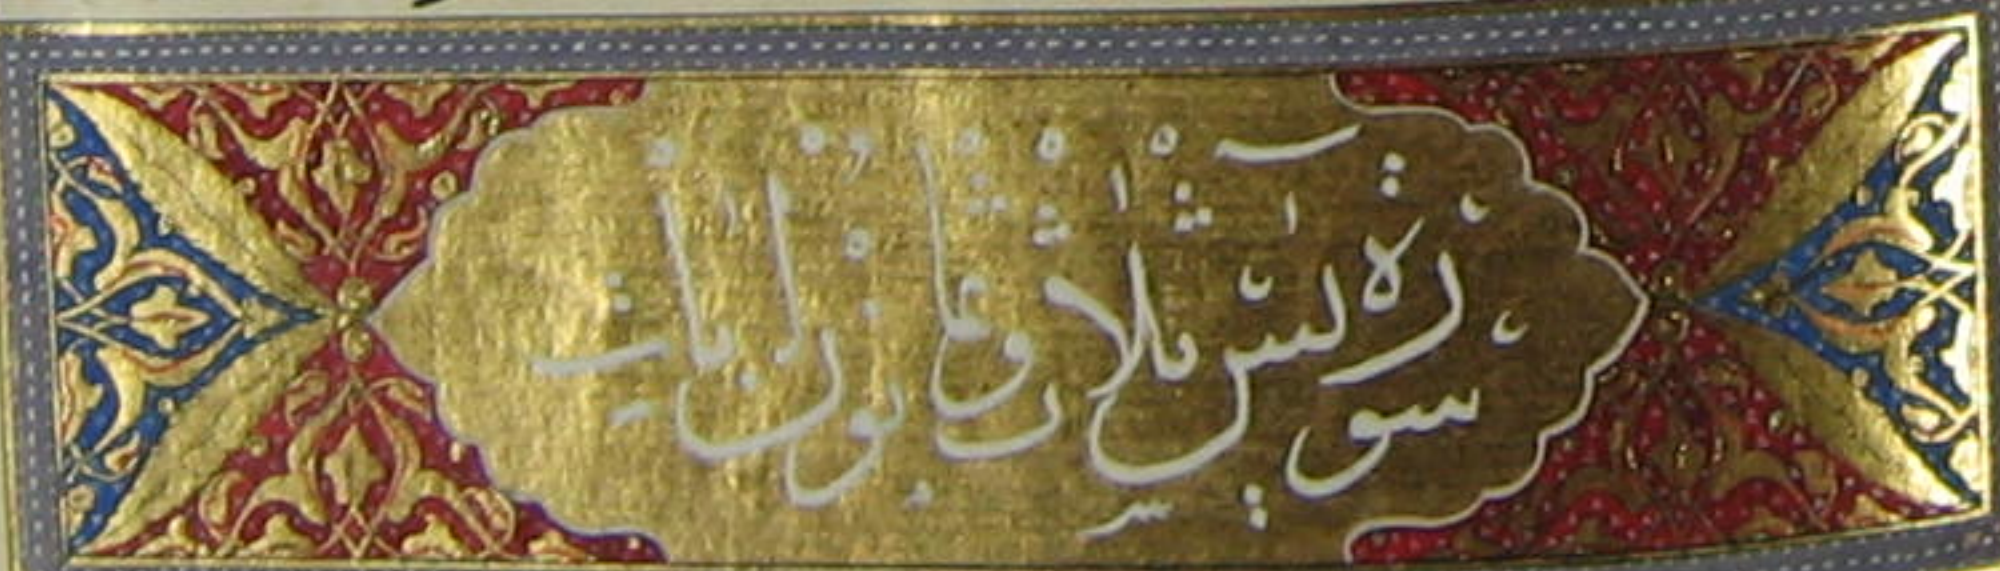 سورة يس ثلاث وثمانون آيات